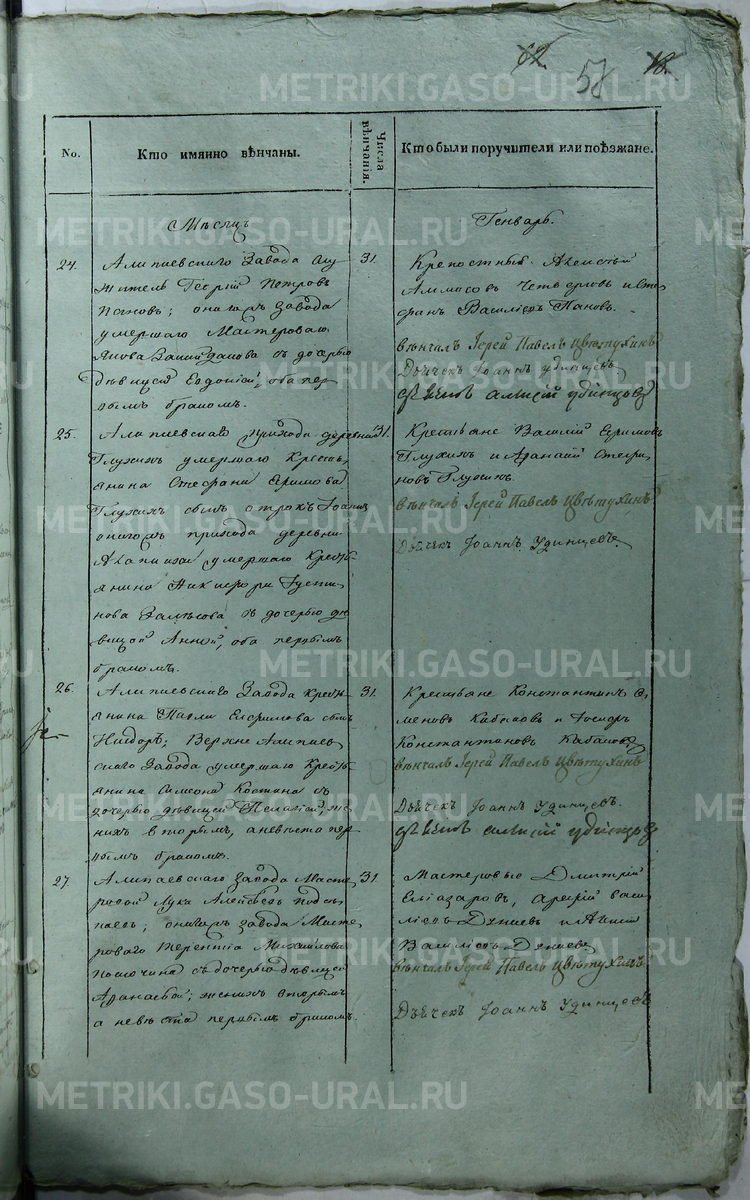 62. 58 18.
METRIKI.GASO-URAL.RU
No.
Кто имянно вѣнчаны.
Числа вѣнчанія.
Кто были поручители или поѣзжане.
Мѣсяцъ
Генварь.
24.
Алапаевскаго Завода слу
житель Георгій Петровъ
Пановъ; онагожъ завода
умершаго Мастероваго
Якова съ дочерью
дѣвицей Евдокіей, оба пер
вымъ бракомъ.
31.
Крепостный Алексѣй
Аммосовъ Четверовъ и Сте
фанъ Василіевъ Пановъ.
вѣнчалъ Іерей Павелъ Цвѣтухинъ
Дьячекъ Іоаннъ Удинцевъ.
Алексій Удинцовъ
25.
Алапаевскаго прихода деревни
Глухихъ умершаго Кресть
янина Стефана Ефимова
Глухихъ сынъ отрокъ Іоаннъ
онагожъ прихода деревни
умершаго Кресть
янина Никифора Густи
нова съ дочерью дѣ
вицей Анной, оба первымъ
бракомъ.
31.
Крестьяне Василій Ефимовъ
Глухихъ и Афанасій Стефа
новъ Глухихъ.
вѣнчалъ Іерей Павелъ Цвѣтухинъ
Дьячекъ Іоаннъ Удинцевъ.
26.
Алапаевскаго Завода Кресть
янина Павла Ефимова сынъ
Верхне Алапаев
скаго Завода умершаго Кресть
янина Симеона Костина съ
дочерью дѣвицей Пелагіей, же
нихъ вторымъ, а невѣста пер
вымъ бракомъ.
31.
Крестьяне Константинъ Се
меновъ Кабаковъ и
Константиновъ Кабаковъ
вѣнчалъ Іерей Павелъ Цвѣтухинъ
Дьячекъ Іоаннъ Удинцевъ.
Алексій Удинцовъ
27.
Алапаевскаго Завода Масте
ровой Лука Алексѣевъ
онагожъ завода Масте
роваго Терентія Михайлова
съ дочерью дѣвицей
Афанасьей; женихъ вторымъ
а невѣста первымъ бракомъ.
31.
Мастеровые Дмитрій
Елиазаровъ, Васи
ліевъ Дунаевъ и
Василіевъ Дунаевъ
вѣнчалъ Іерей Павелъ Цвѣтухинъ.
Дьячекъ Іоаннъ Удинцевъ